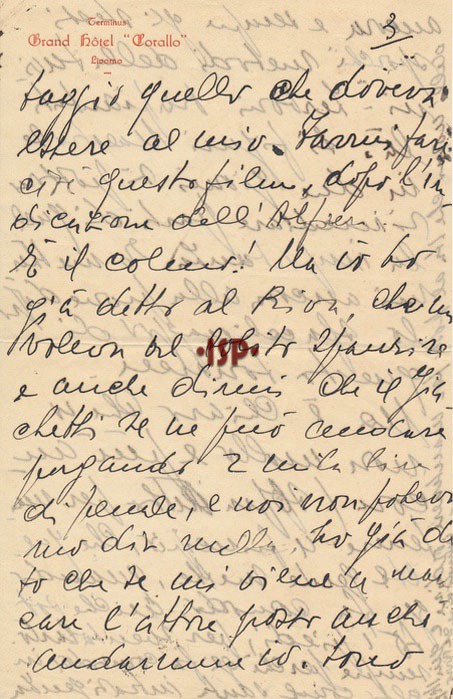 3
Terminus
Grand Hôtel "Corallo"
Livorno
taggio quello che doveva
essere al mio. Farmi fare
questo film, dopo l'in
dell'Alfieri.
È il colmo! Ma io ho
già detto al Riva, che mi
voleva al solito
·ISP·
e anche dirmi che il Gia
chetti se ne può andare
pagando 2 mila lire
di penale, e noi non poteva
mo dir nulla, ho già det
to che se mi viene a man
care l'attore posso anche
andarmene io. Sono